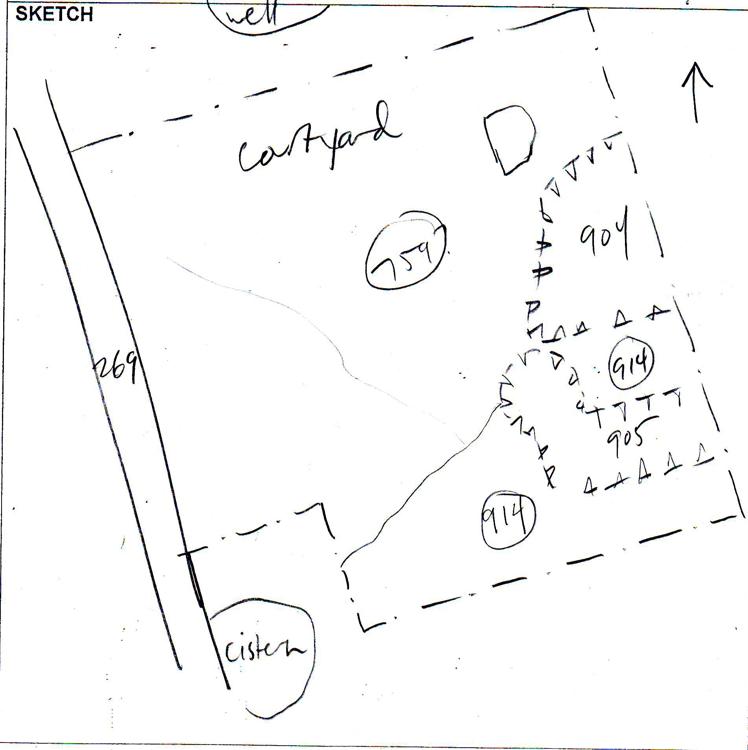 SKETCH
well
courtyard
904
759
269
914
905
914
cistern